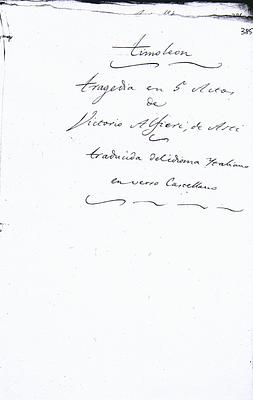 385
Timoleon
tragedia en 5 Actos
de
Victorio Alfieri, de Asti
traducida del idioma Italiano
en verso Castellano